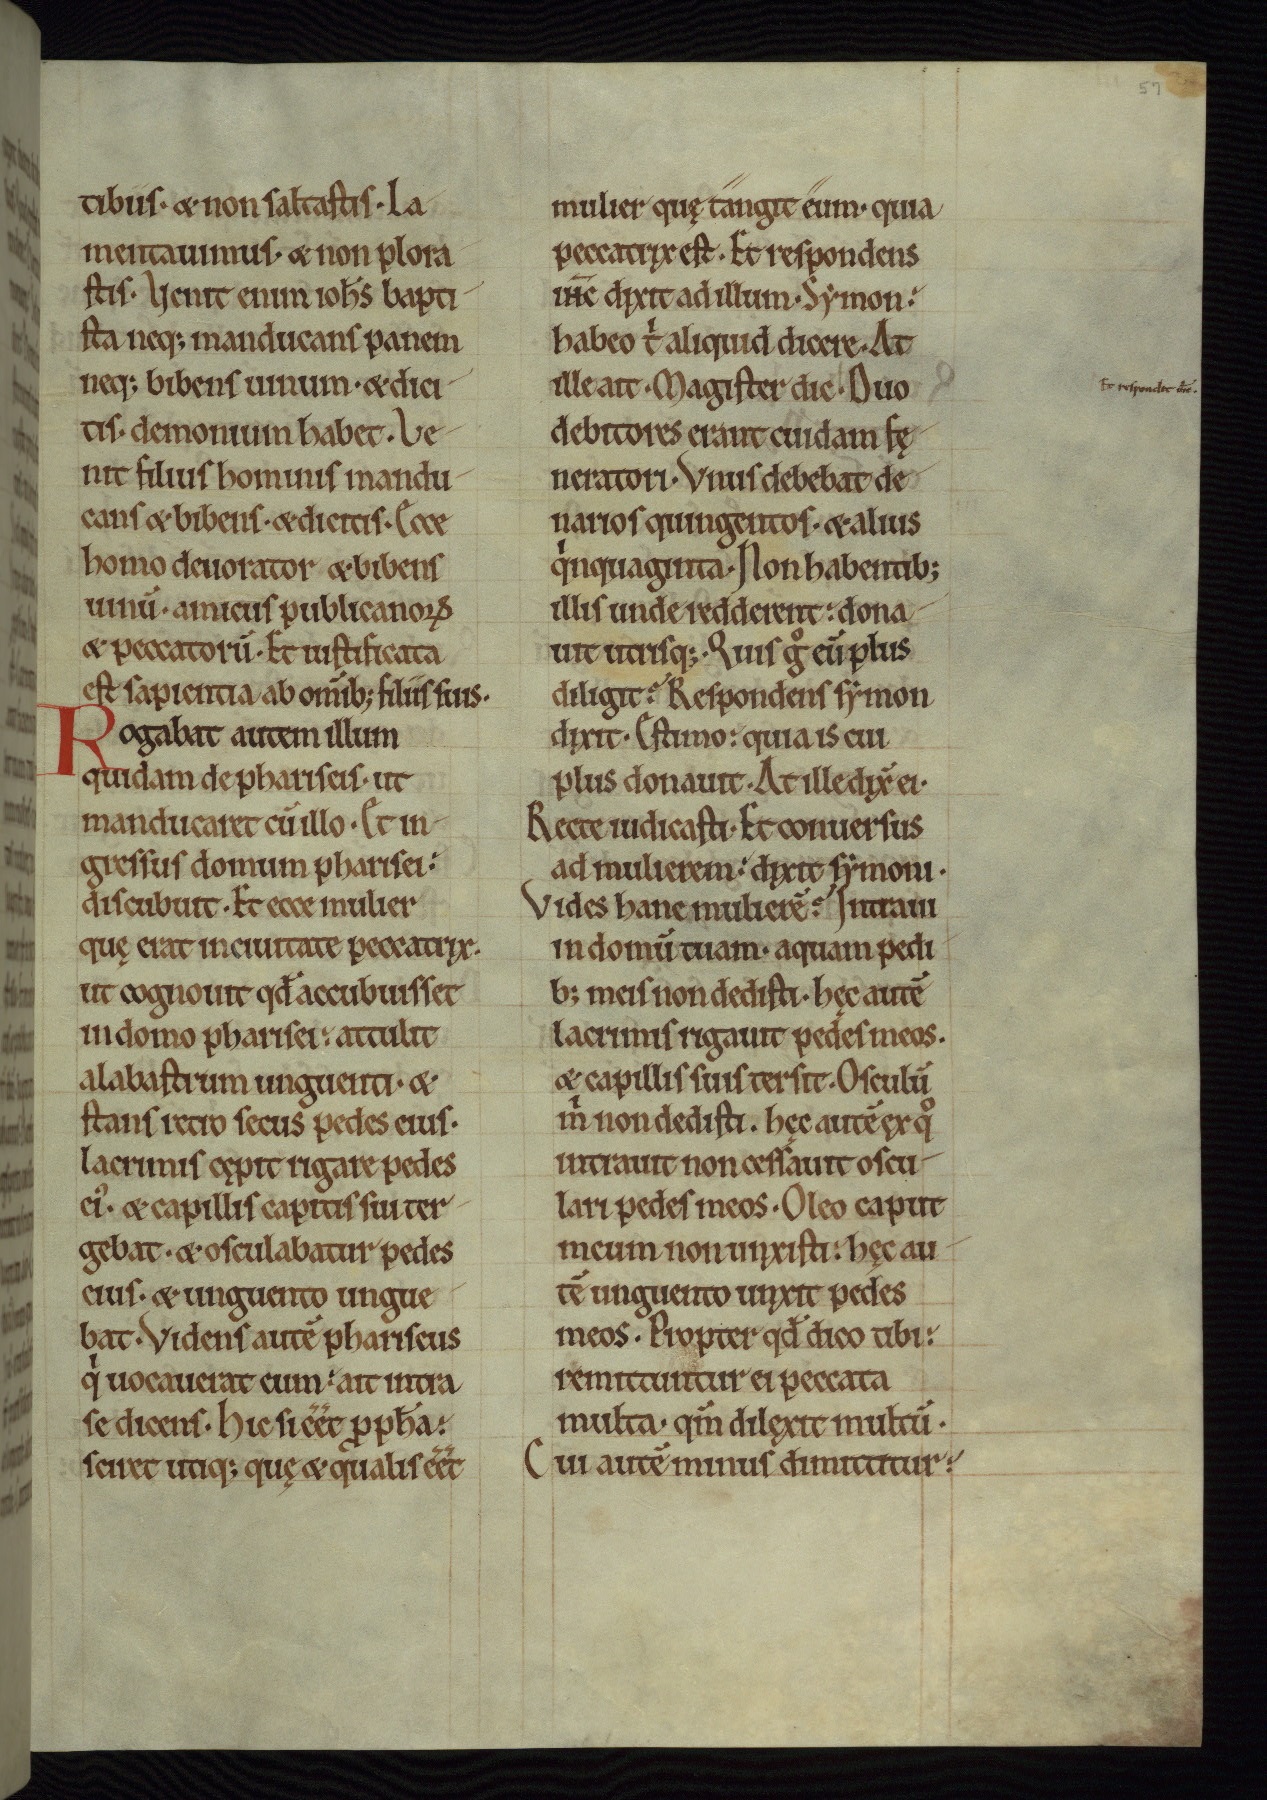 57
tibus· & non saltastis· La
mentauimus· & non plora
stis· Uenit enim ioħs bapti
sta neq; manducans panem
neq; bibens uinum· & dici
tis· demonium habet· Ve
nit filius hominis mandu
cans & bibens· & dicitis· Ecce
homo deuorator & bibens
uinū· amicus publicanoꝝ
& peccatorū· Et iustificata
est sapientia ab om̅ib; filiis suis·
Rogabat autem illum
quidam de phariseis· ut
manducaret cū illo· Et in
gressus domum pharisei:
discubuit· Et ecce mulier
quę erat in ciuitate peccatrix·
ut cognouit qđ accubuisset
in domo pharisei: attulit
alabastrum unguenti· &
stans retro secus pedes eius·
lacrimis cępit rigare pedes
ei᾿· & capillis capitis sui ter
gebat· & osculabatur pedes
eius· & unguento ungue
bat· Videns autē phariseus
qͥ uocauerat eum: ait intra
se dicens· Hic si eēt ꝓpħa:
sciret utiq; quę & qualis eēt
mulier quę tangit eum· quia
peccatrix est· Et respondens
ih̅c dixit ad illum· Sẏmon:
habeo tͥ aliquid dicere· At
ille ait· Magister dic· Duo
Et respondēt dic̄·
debitores erant cuidam fę
neratori· Vnus debebat de
narios quingentos· & alius
qͥnquaginta· Non habentib;
illis unde redderent: dona
uit utrisq;· Quis gͦ eū plus
diligit? Respondens sẏmon
dixit· Estimo: quia is cui
plus donauit· At ille dix̅ ei·
Recte iudicasti· Et conuersus
ad mulierem: dixit sẏmoni·
Vides hanc mulierē? Intraui
in domū tuam· aquam pedi
b; meis non dedisti· hęc autē
lacrimis rigauit pedes meos·
& capillis suis tersit· Osculū
mͥ non dedisti· hęc autē ex qͦ
intrauit non cessauit oscu
lari pedes meos· Oleo caput
meum non unxisti: hęc au
tē unguento unxit pedes
meos· Propter qđ dico tibi:
remittuntur ei peccata
multa· qm̅ dilexit multū·
Cui autē minus dimittitur: